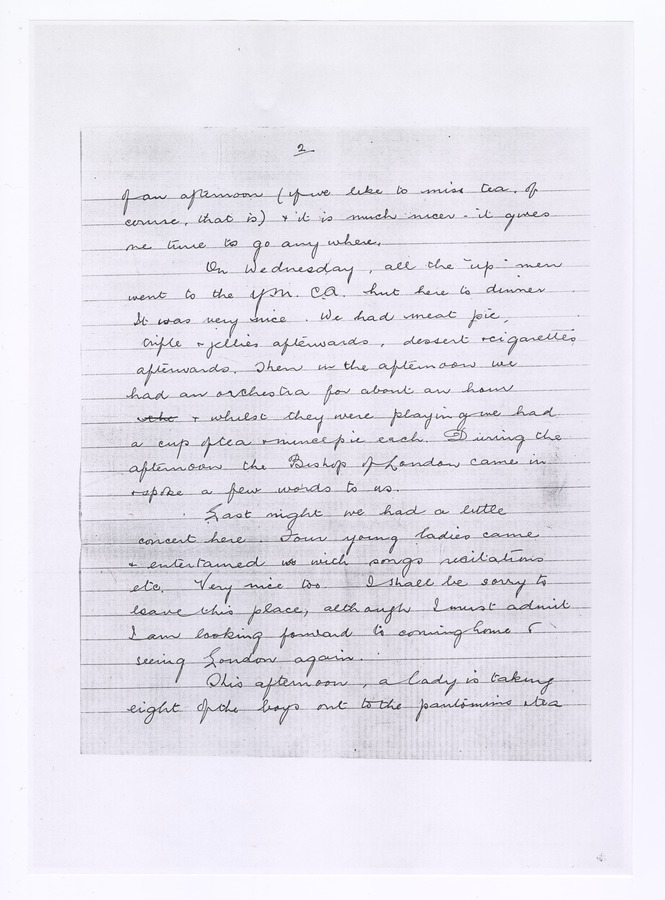 2
of an afternoon (if we like to miss tea, of
course, that is) & it is much nicer - it gives
me time to go any where.
On Wednesday, all the "up" men
went to the Y.M.C.A. hut here to dinner
It was very nice. We had meat pie,
trifle & jellies afterwards, dessert & cigarettes
afterwards. Then in the afternoon we
had an orchestra for about an hour
& whilst they were playing we had
a cup of tea & mince pie each. During the
afternoon the Bishop of London came in
& spoke a few words to us.
Last night we had a little
concert here. Four young ladies came
& entertained us with songs recitations
etc. Very nice too. I shall be sorry to
leave this place, although I must admit
I am looking forward to coming home &
seeing London again.
This afternoon, a lady is taking
eight of the boys out to the pantomime & tea